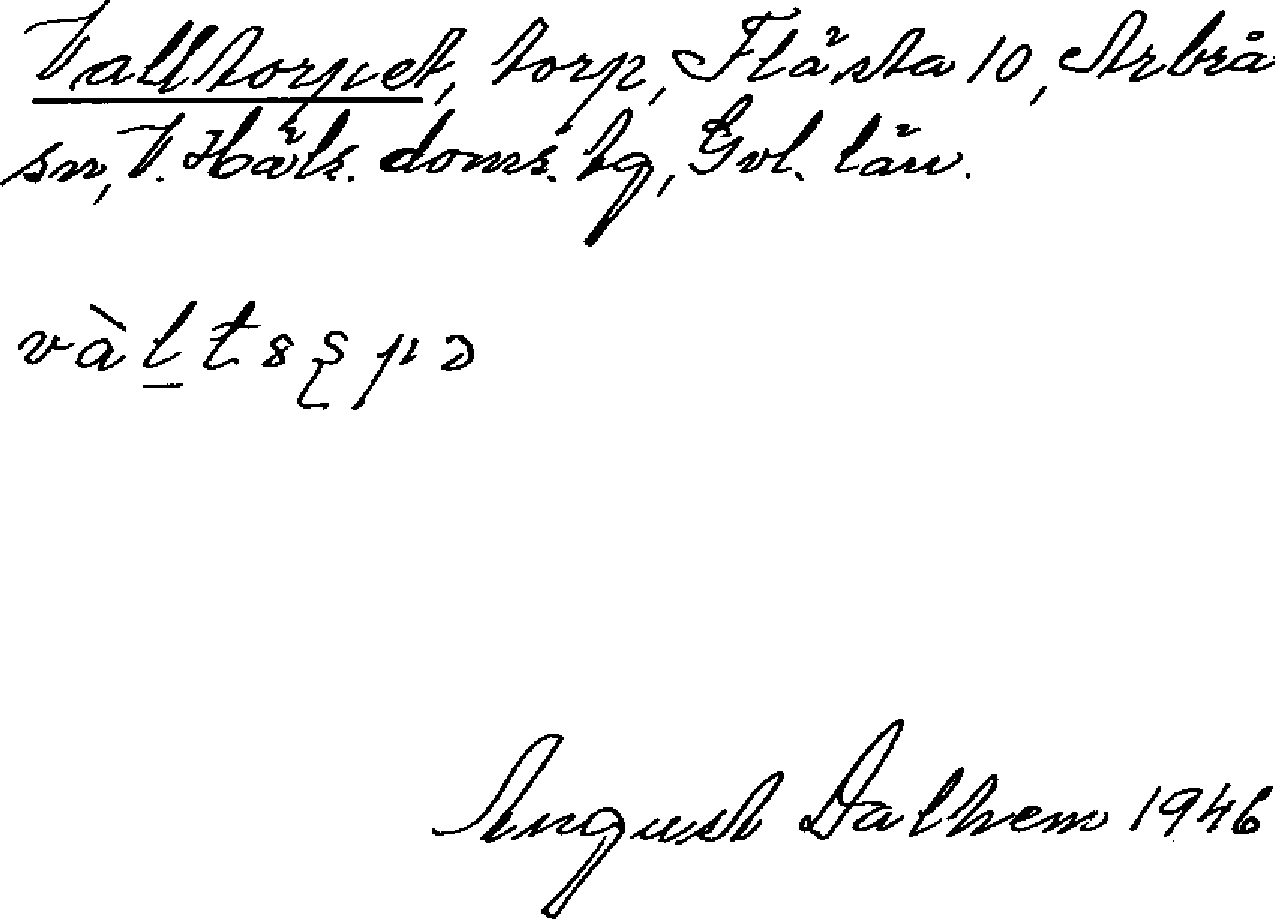 Valltorpet, torp, Flästa 10, Arbrå
sn, V. Häls. doms. tg, Gvl. län.
August Dalhem 1946